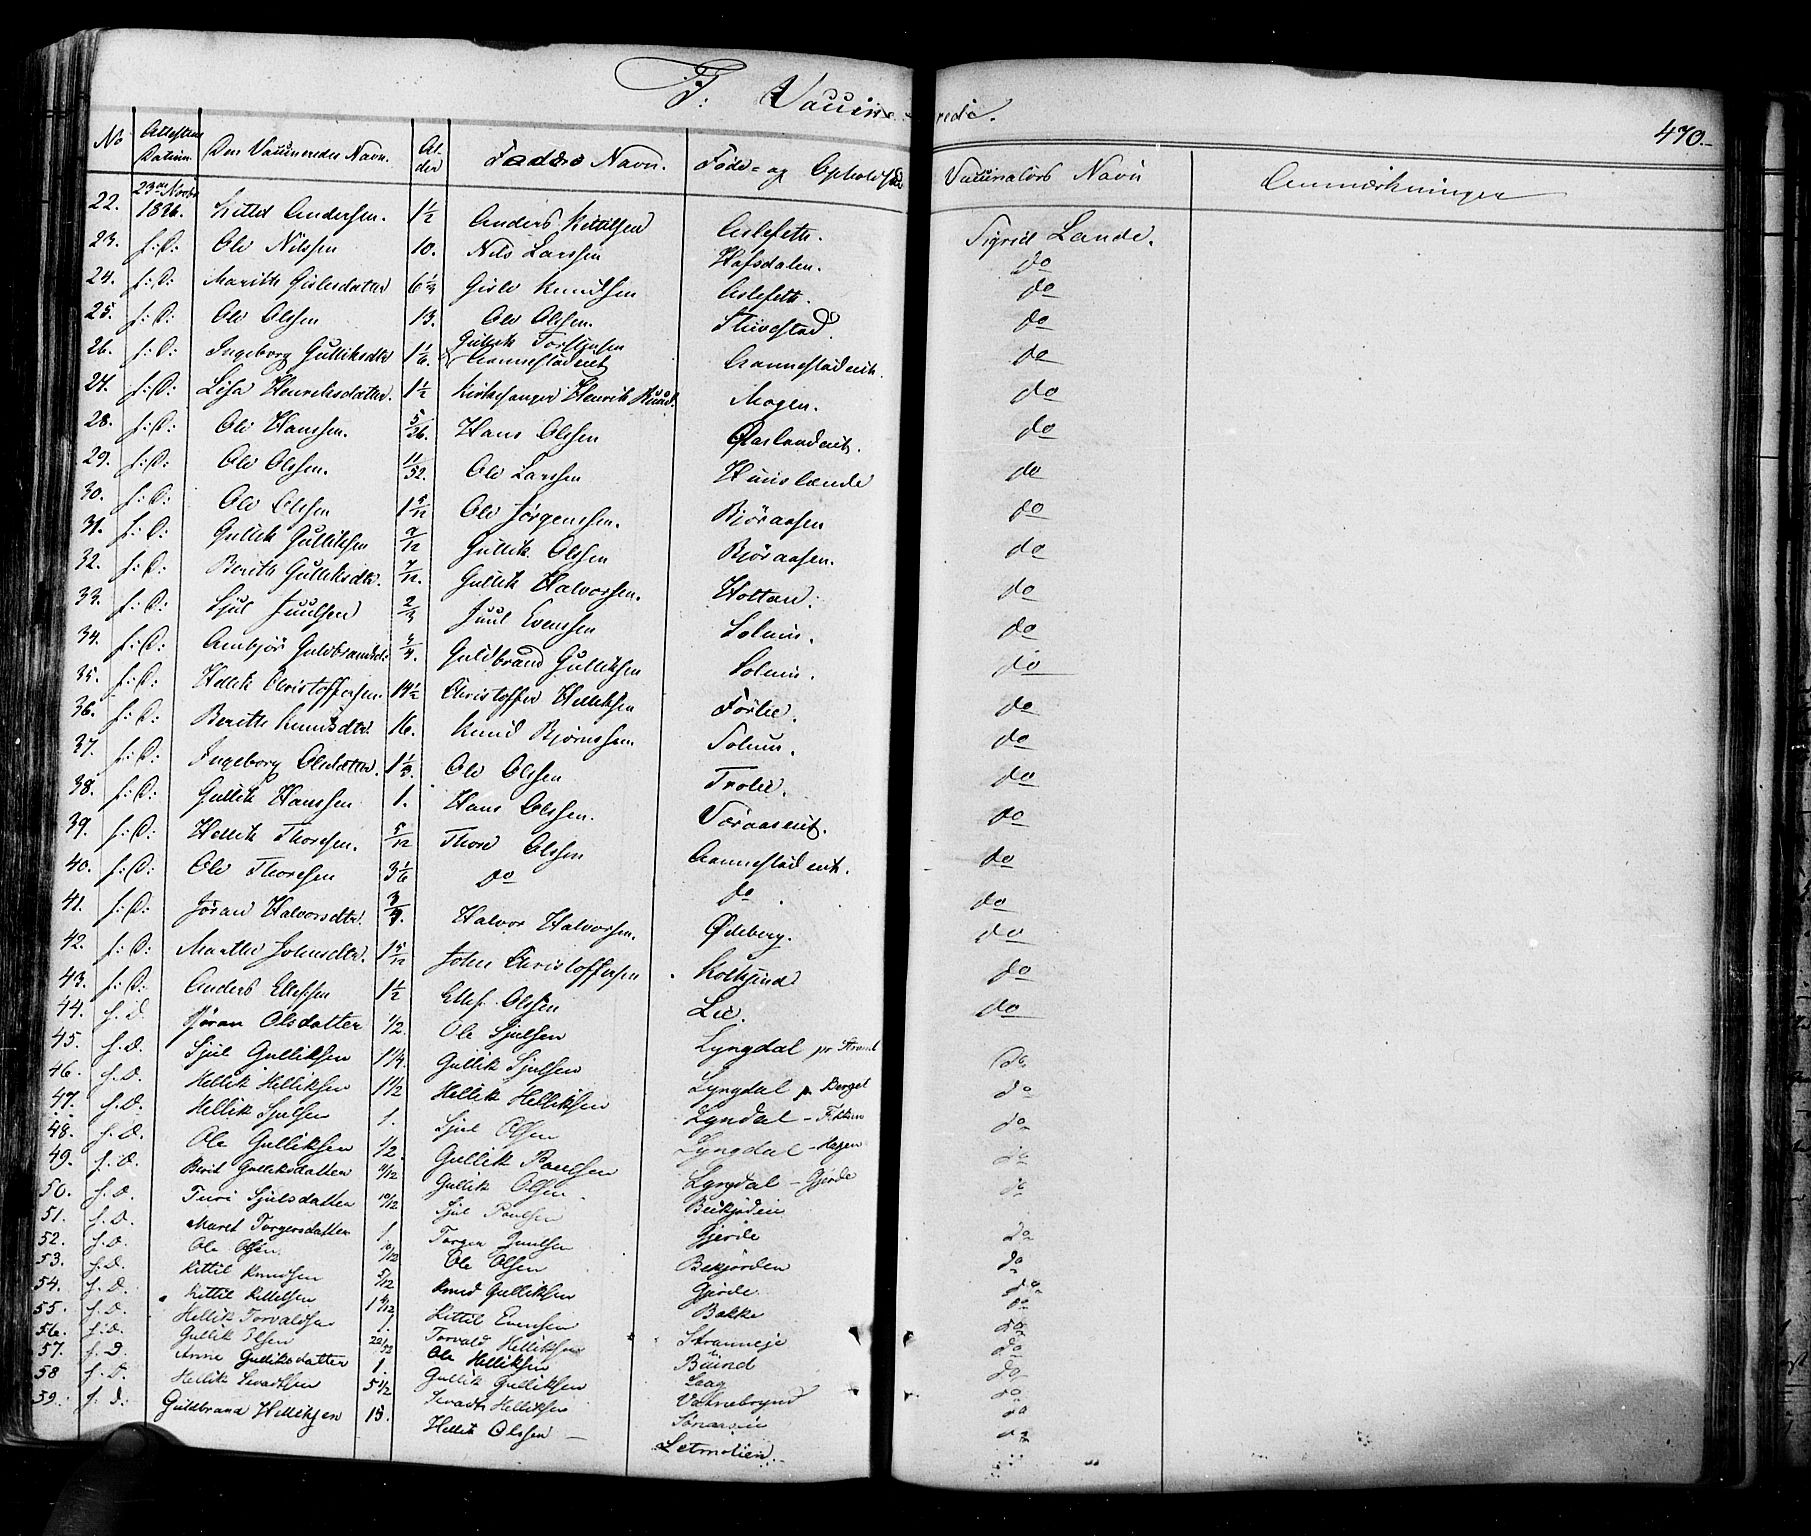 F: Vaccinerede.
470.
No Attestens Datum. Den Vaccineredes Navn. Alder Faders Navn. Føde- og Opholdssted Vaccinatørs Navn Anmærkninger
22. 23de Novbr 1836. Kittel Andersen. 1 1/2 Anders Kittilsen Aslefeth. Sigrid Lande.
23. f: D: Ole Nilssen 10. Nils Larssen Hafsdalen. do
24. f: D: Marith Gislesdatter 6 1/2 Gisle Knudsen Aslefeth. do
25. f: D: Ole Olssen 13. Ole Olssen. Thivestad. do
26. f: D: Ingeborg Gulliksdtr 1 1/6. Gullik Torstensen Aannestadeiet Aannestadeiet. do
27. f: D: Lisa Henriksdatter. 1 1/2 Kirkesanger Henrik Ruud. Mogen. do
28. f: D: Ole Hanssen. 5/26. Hans Olssen Aaslandeiet. do
29. f: D: Ole Olssen. 11/52. Ole Larssen Huuslænde do
30. f: D: Ole Olssen 1 5/12 Ole Jørgenssen. Bjøraasen do
31. f: D: Gullik Gulliksen 9/12 Gullik Olssen Bjøraasen. do
32. f: D: Berith Gulliksdtr. 7/12. Gullik Halvorssen. Holtan. do
33. f: D: Sjul Juulsen 2/3 Juul Evenssen Solum. do
34. f: D: Anbjør Guldbrandsd: 3/4 Guldbrand Gulliksen Solum. do
35. f: D: Hellik Christoffersen 14 1/2 Christoffer Helliksen Førlie. do
36. f: D: Berith Knudsdtr. 16. Knud Bjørnssen. Solum. do
37. f: D: Ingeborg Olsdatter. 1 1/2. Ole Olssen Trolie. do
38. f: D: Gullik Hanssen 1. Hans Olssen. Væraaseiet. do
39. f: D: Hellik Thoresen. 5/12 Thore Olssen Aannestadeiet. do
40. f: D: Ole Thoresen 3 1/6 do do do
41. f: D: Jøran Halvorsdtr. 3/4. Halvor Halvorssen. Ødeberg. do
42. f: D: Marthe Johnsdtr. 1 5/12 John Christoffersen Kolkjind do
43. f: D: Anders Ellefsen 1 1/2 Ellef Olssen Lie. do
44. f. D. Jøran Olsdatter 1/2 Ole Sjulsen Lyngdal pr Strand Do
45. f. D. Sjul Gulliksen 1 1/4. Gullik Sjulsen Lyngdal p Berget do
46. f. D. Hellik Helliksen 1 1/2 Hellik Helliksen Lyndal - do
47. f. D. Hellik Sjulsen 1. Sjul Olsen Lyngdal - Hagen do
48. f. D. Ole Gulliksen 1/2. Gullik Poulsen Lyngdal - Gjørde do
49. f. D. Berit Gulliksdatter 11/12 Gullik Olsen. Bekjørden do
50. f. D. Turi Sjulsdatter 10/12 Sjul Poulsen Gjerde do
51. f. D. Maret Torgersdatter 1 Torger Juulsen Bekjørden do
52. f. D. Ole Olsen 10/12 Ole Olsen Gjørde do
53. f. D. Kittil Knudsen 5/12 Knud Gulliksen Bakke do
54. f. D. Kittil Kittilsen 1 Kittil Evensen do
55. f. D. Hellik Torvaldsen 1. Torvald Helliksen do
56. f. D. Gullik Olsen 22/12 Ole Helliksen do
57. f. D. Anne Gulliksdatter 1 Gullik Gulliksen Vatnebrynd do
58 f. D. Hellik 5 1/2 Helliksen do
59. f. D. Guldbrand Helliksen 15. Hellik Olssen do